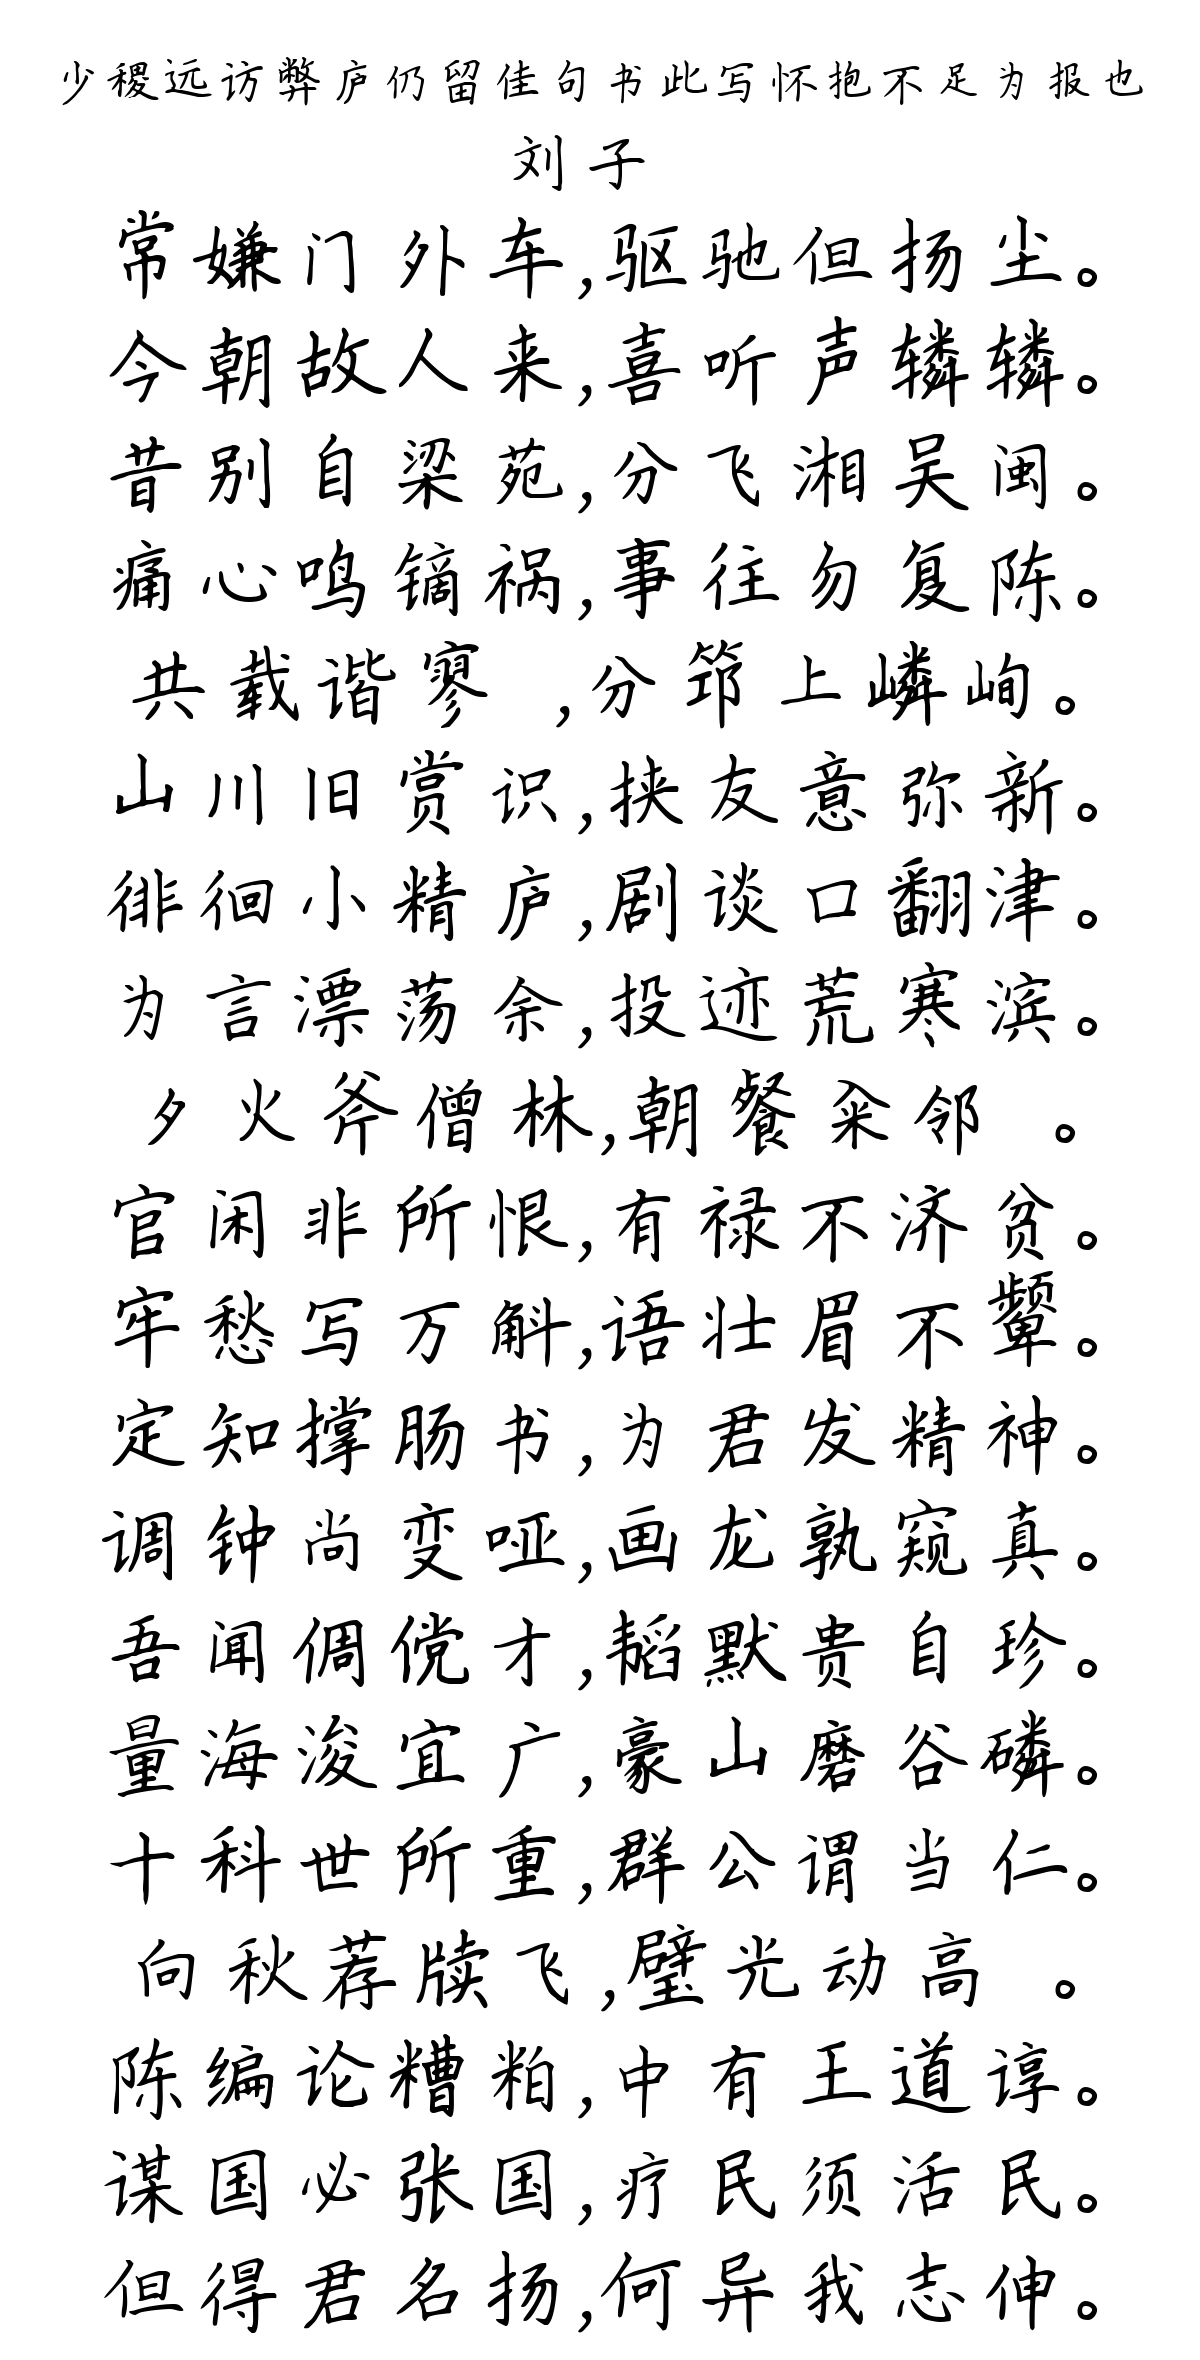 少稷远访弊庐仍留佳句书此写怀抱不足为报也
刘子
常嫌门外车,驱驰但扬尘。
今朝故人来,喜听声辚辚。
昔别自梁苑,分飞湘吴闽。
痛心鸣镝祸,事往勿复陈。
共载谐寥 ,分筇上嶙峋。
山川旧赏识,挟友意弥新。
徘徊小精庐,剧谈口翻津。
为言漂荡余,投迹荒寒滨。
夕火斧僧林,朝餐籴邻 。
官闲非所恨,有禄不济贫。
牢愁写万斛,语壮眉不颦。
定知撑肠书,为君发精神。
调钟尚变哑,画龙孰窥真。
吾闻倜傥才,韬默贵自珍。
量海浚宜广,豪山磨谷磷。
十科世所重,群公谓当仁。
向秋荐牍飞,璧光动高 。
陈编论糟粕,中有王道谆。
谋国必张国,疗民须活民。
但得君名扬,何异我志伸。